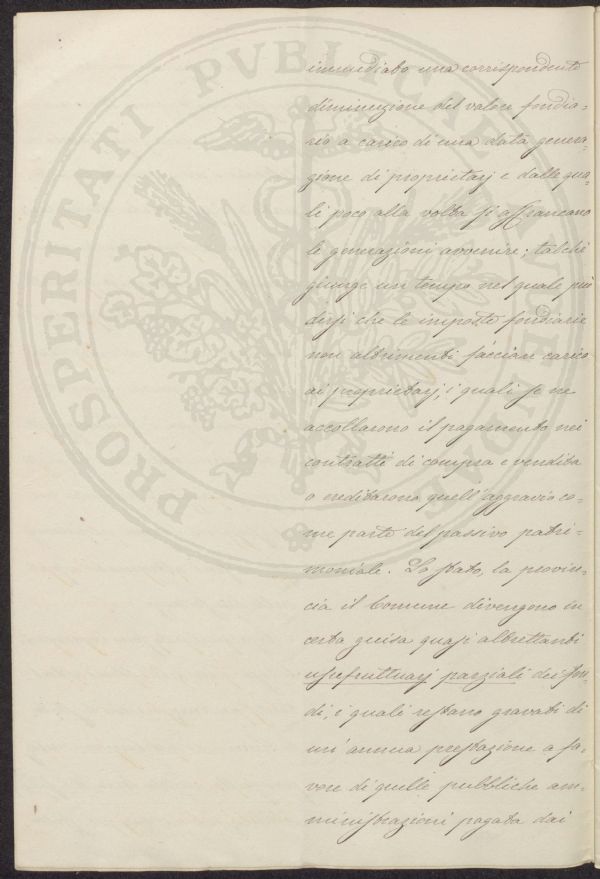 immediato una corrispondente
diminuzione del valore fondia=
rio a carico di una data genera=
zione di proprietarj e dalle qua=
li poco alla volta si affrancano
le generazioni avvenire; talchè
giunge un tempo nel quale può
dirsi che le imposte fondiarie
non altrimenti facciano carico
ai proprietarj, i quali se ne
accollarono il pagamento nei
contratti di compra e vendita
o ereditarono quell'aggravio co=
me parte del passivo patri=
moniale. Lo stato, la provin=
cia il Comune divengono in
certa guisa quasi altrettanti
usufruttuarj parziali dei fon=
di, i quali restano gravati di
un'annua prestazione a fa=
vore di quelle pubbliche am=
ministrazioni pagata dai
PROSPERITATI PVBLICAE